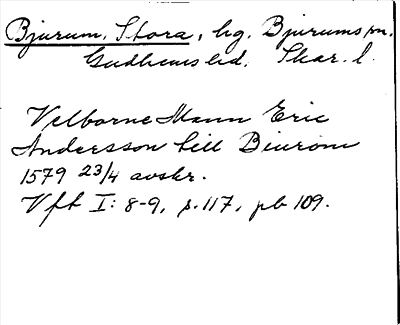 Bjurum, Stora, hg. Bjurums sn,
Gudhems hd. Skar. l.
Velborne Mann Eric
Andersson till Biurom
1579 23/4 avskr.
Vft I: 8-9, s. 117, pb 109.